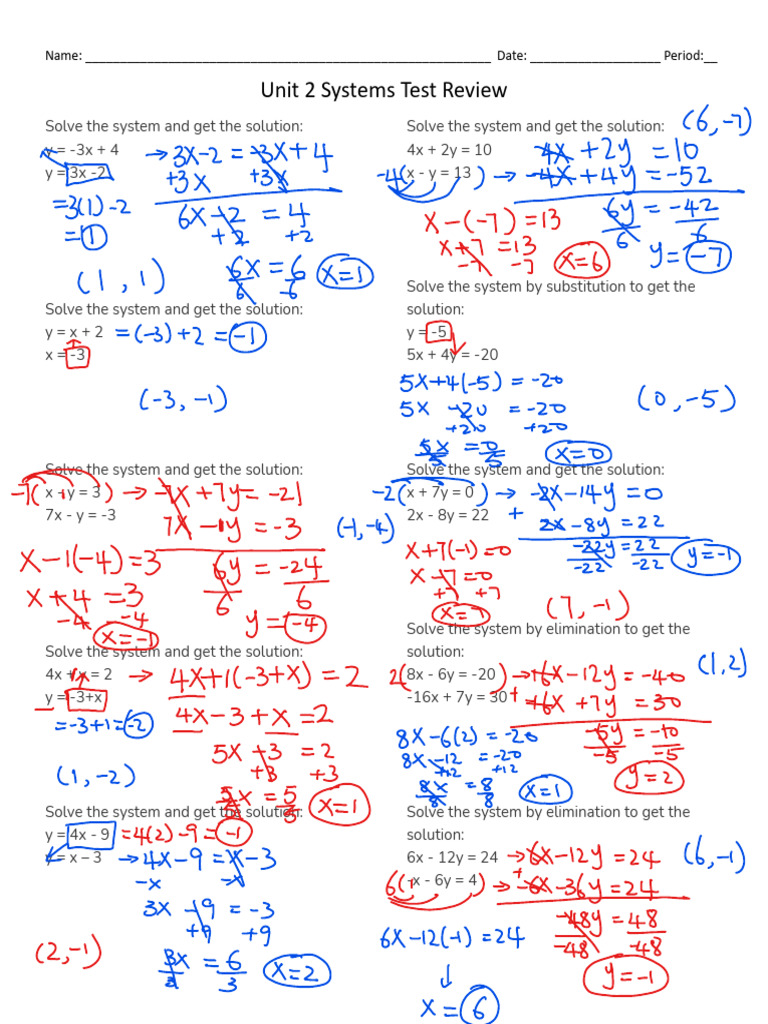 Name: ______________________ Date: ______________ Period:__
Unit 2 Systems Test Review
Solve the system and get the solution:
y = -3x + 4 → 3x-2 = -3x+4
y = 3x -2 +3x +3x
=3(1)-2 6x-2 = 4
=1 +2 +2
(1, 1) 6x = 6 x=1
6 6
Solve the system and get the solution: (6, -7)
4x + 2y = 10 4x+2y = 10
-4( x - y = 13 ) → -4x+4y = -52
x-(-7) = 13 6y = -42
x+7 = 13 6 6
-7 -7 x=6 y = -7
Solve the system and get the solution:
y = x + 2 = (-3)+2 = -1
x = -3
(-3, -1)
Solve the system by substitution to get the
solution:
y = -5
5x + 4y = -20
5x+4(-5) = -20
5x -20 = -20 (0, -5)
+20 +20
5x = 0 x=0
5 5
Solve the system and get the solution:
-7( x + y = 3 ) → -7x+7y = -21
7x - y = -3 7x-1y = -3 (-1, -4)
x-1(-4) = 3 6y = -24
x+4 = 3 6 6
-4 -4 y = -4
x=-1
Solve the system and get the solution:
-2( x + 7y = 0 ) → -2x-14y = 0
2x - 8y = 22 + 2x-8y = 22
x+7(-1) = 0 -22y = 22 y=-1
x-7 = 0 -22 -22
+7 +7
x=7 (7, -1)
Solve the system and get the solution:
4x + x = 2 → 4x+1(-3+x) = 2
y = -3+x 4x-3+x = 2
=-3+1=-2 5x-3 = 2
+3 +3
(1, -2) 5x = 5 x=1
5 5
Solve the system by elimination to get the
solution: (1, 2)
2( 8x - 6y = -20 ) → 16x-12y = -40
-16x + 7y = 30 + -16x+7y = 30
8x-6(2) = -20 -5y = -10
8x-12 = -20 -5 -5
+12 +12 y = 2
8x = 8 x=1
8 8
Solve the system and get the solution:
y = 4x - 9 = 4(2)-9 = -1
y = x – 3 → 4x-9 = x-3
-x -x
3x-9 = -3
+9 +9
(2, -1) 3x = 6 x=2
3 3
Solve the system by elimination to get the
solution:
6x - 12y = 24 → 6x-12y = 24 (6, -1)
6( -x - 6y = 4 ) → + -6x-36y = 24
6x-12(-1) = 24 -48y = 48
↓ -48 -48
x = 6 y = -1